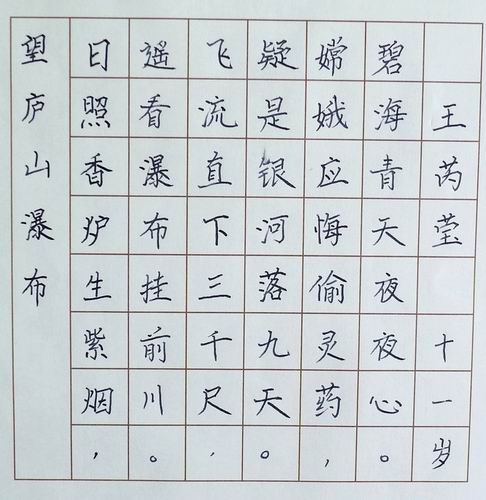 望庐山瀑布
日照香炉生紫烟，
遥看瀑布挂前川。
飞流直下三千尺，
疑是银河落九天。
嫦娥应悔偷灵药，
碧海青天夜夜心。
王芮莹 十一岁